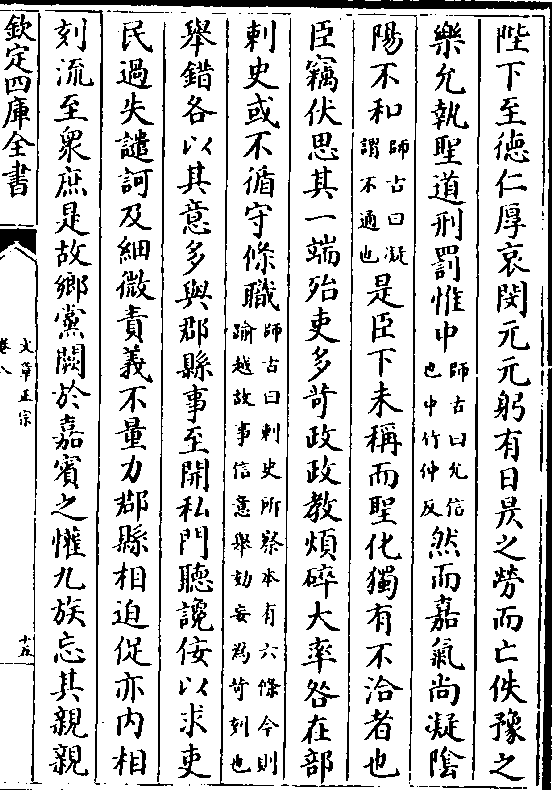 陛下至徳仁厚哀閔元元躬有日昃之勞而亡佚豫之
樂允執聖道刑罰惟中師古曰允信也中竹仲反然而嘉氣尚凝隂
陽不和師古曰凝謂不通也是臣下未稱而聖化獨有不洽者也
臣竊伏思其一端殆吏多苛政政教煩碎大率咎在部
刺史或不循守條職師古曰刺史所察本有六條今則踰越故事信意舉劾妄為苛刻也
舉錯各以其意多與郡縣事至開私門聽讒佞以求吏
民過失譴訶及細微責義不量力郡縣相迫促亦内相
刻流至衆庶是故鄉黨闕於嘉賓之懽九族忘其親親
欽定四庫全書
文章正宗
卷八
十五